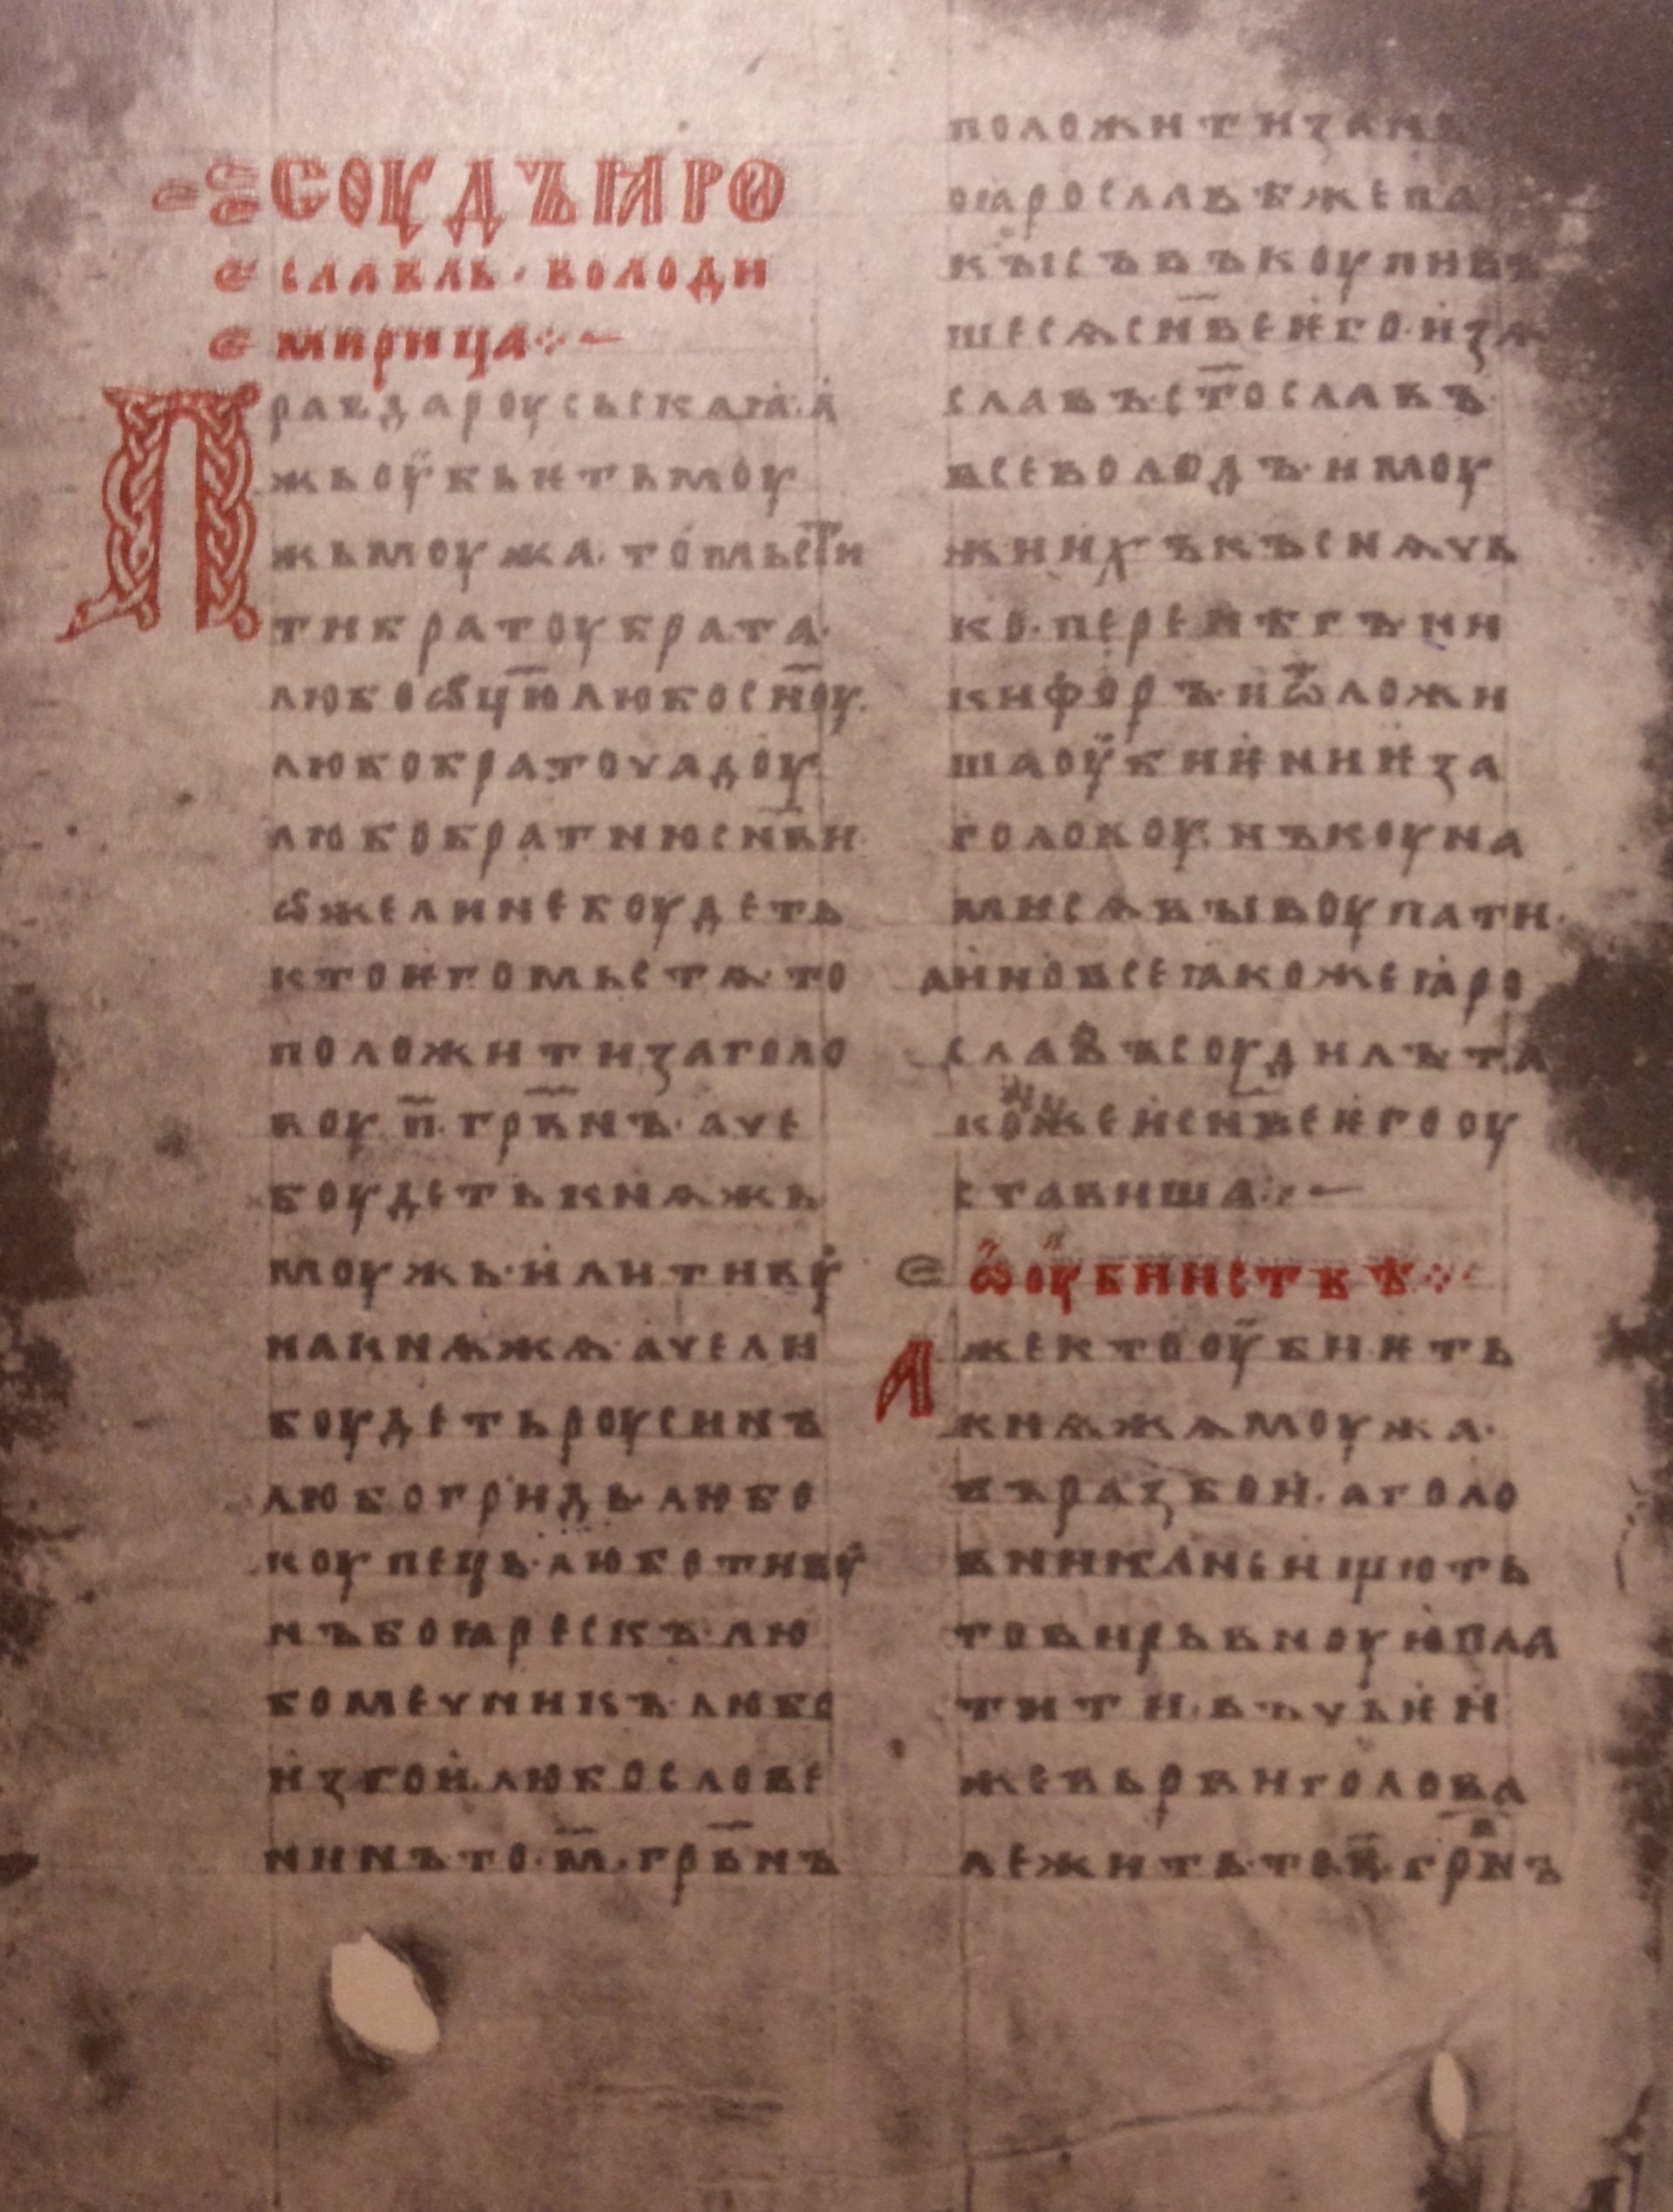 СОУДЪ ꙖРО
СЛАВЛЬ · ВОЛОДИ
МИРИЦА ·:· —
ПРАВДА РОУСЬСКАꙖ · А
ЖЬ ОУБЬѤТЬ МОУ
ЖЬ МОУЖА · ТО МЬСТИ
ТИ БРАТОУ БРАТА ·
ЛЮБО Ѡ҃ЦЮ ЛЮБО СН҃ОУ ·
ЛЮБО БРАТОУЧАДОУ
ЛЮБО БРАТНЮ СН҃ВИ ·
ѠЖЕ ЛИ НЕ БОУДЕТЬ
КТО ѤГО МЬСТѦ · ТО
ПОЛОЖИТИ ЗА ГОЛО
ВОУ · П҃ · ГРВ҃НЪ · АЧЕ
БОУДЕТЬ КНѦЖЬ
МОУЖЬ · ИЛИ ТИВУ
НА КНѦЖѦ · АЧЕ ЛИ
БОУДЕТЬ РОУСИНЪ
ЛЮБО ГРИДЬ · ЛЮБО
КОУПЕЦЬ · ЛЮБО ТИВУ
НЪ БОꙖРЕСКЪ · ЛЮ
БО МЕЧНИКЪ · ЛЮБО
ИЗГОИ · ЛЮБО СЛОВЕ
НИНЪ ТО · М҃ · ГРВ҃НЪ
ПОЛОЖИТИ ЗА НЬ
ꙖРОСЛАВѢ ЖЕ ПА
КЫ СЪВЪКОУПИВЪ
ШЕСѦ СН҃ВЕ ѤГО · ИЗѦ
СЛАВЪ · СТ҃ОСЛАВЪ
ВСЕВОЛОДЪ · И МОУ
ЖИ ИХЪ КЪСНѦЧЬ
КО · ПЕРЕНѢГЪ · НИ
КИФОРЪ · И Ѿ҃ЛОЖИ
ША ОУБИѤНИѤ ЗА
ГОЛОВОУ · НЪ КОУНА
МИ СѦ ВЫКОУПАТИ ·
А ИНО ВСЕ ꙖКОЖЕ ꙖРО
СЛАВЪ СОУДИЛЪ ТА
КОЖЕ И СН҃ВЕ ѤГО ОУ
СТАВИША ·:· —
Ѡ ОУБИИСТВѢ ·:·
АЖЕ КТО ОУБИѤТЬ
КНѦЖѦ МОУЖА ·
ВЪ РАЗБОИ · А ГОЛО
ВНИКА НЕ ИЩЮТЬ
ТО ВИРЬВНОУЮ ПЛА
ТИТИ · ВЪ ЧЬѤИ
ЖЕ ВЬРВИ ГОЛОВА
ЛЕЖИТЬ ТО · П҃ · ГРВ҃НЪ